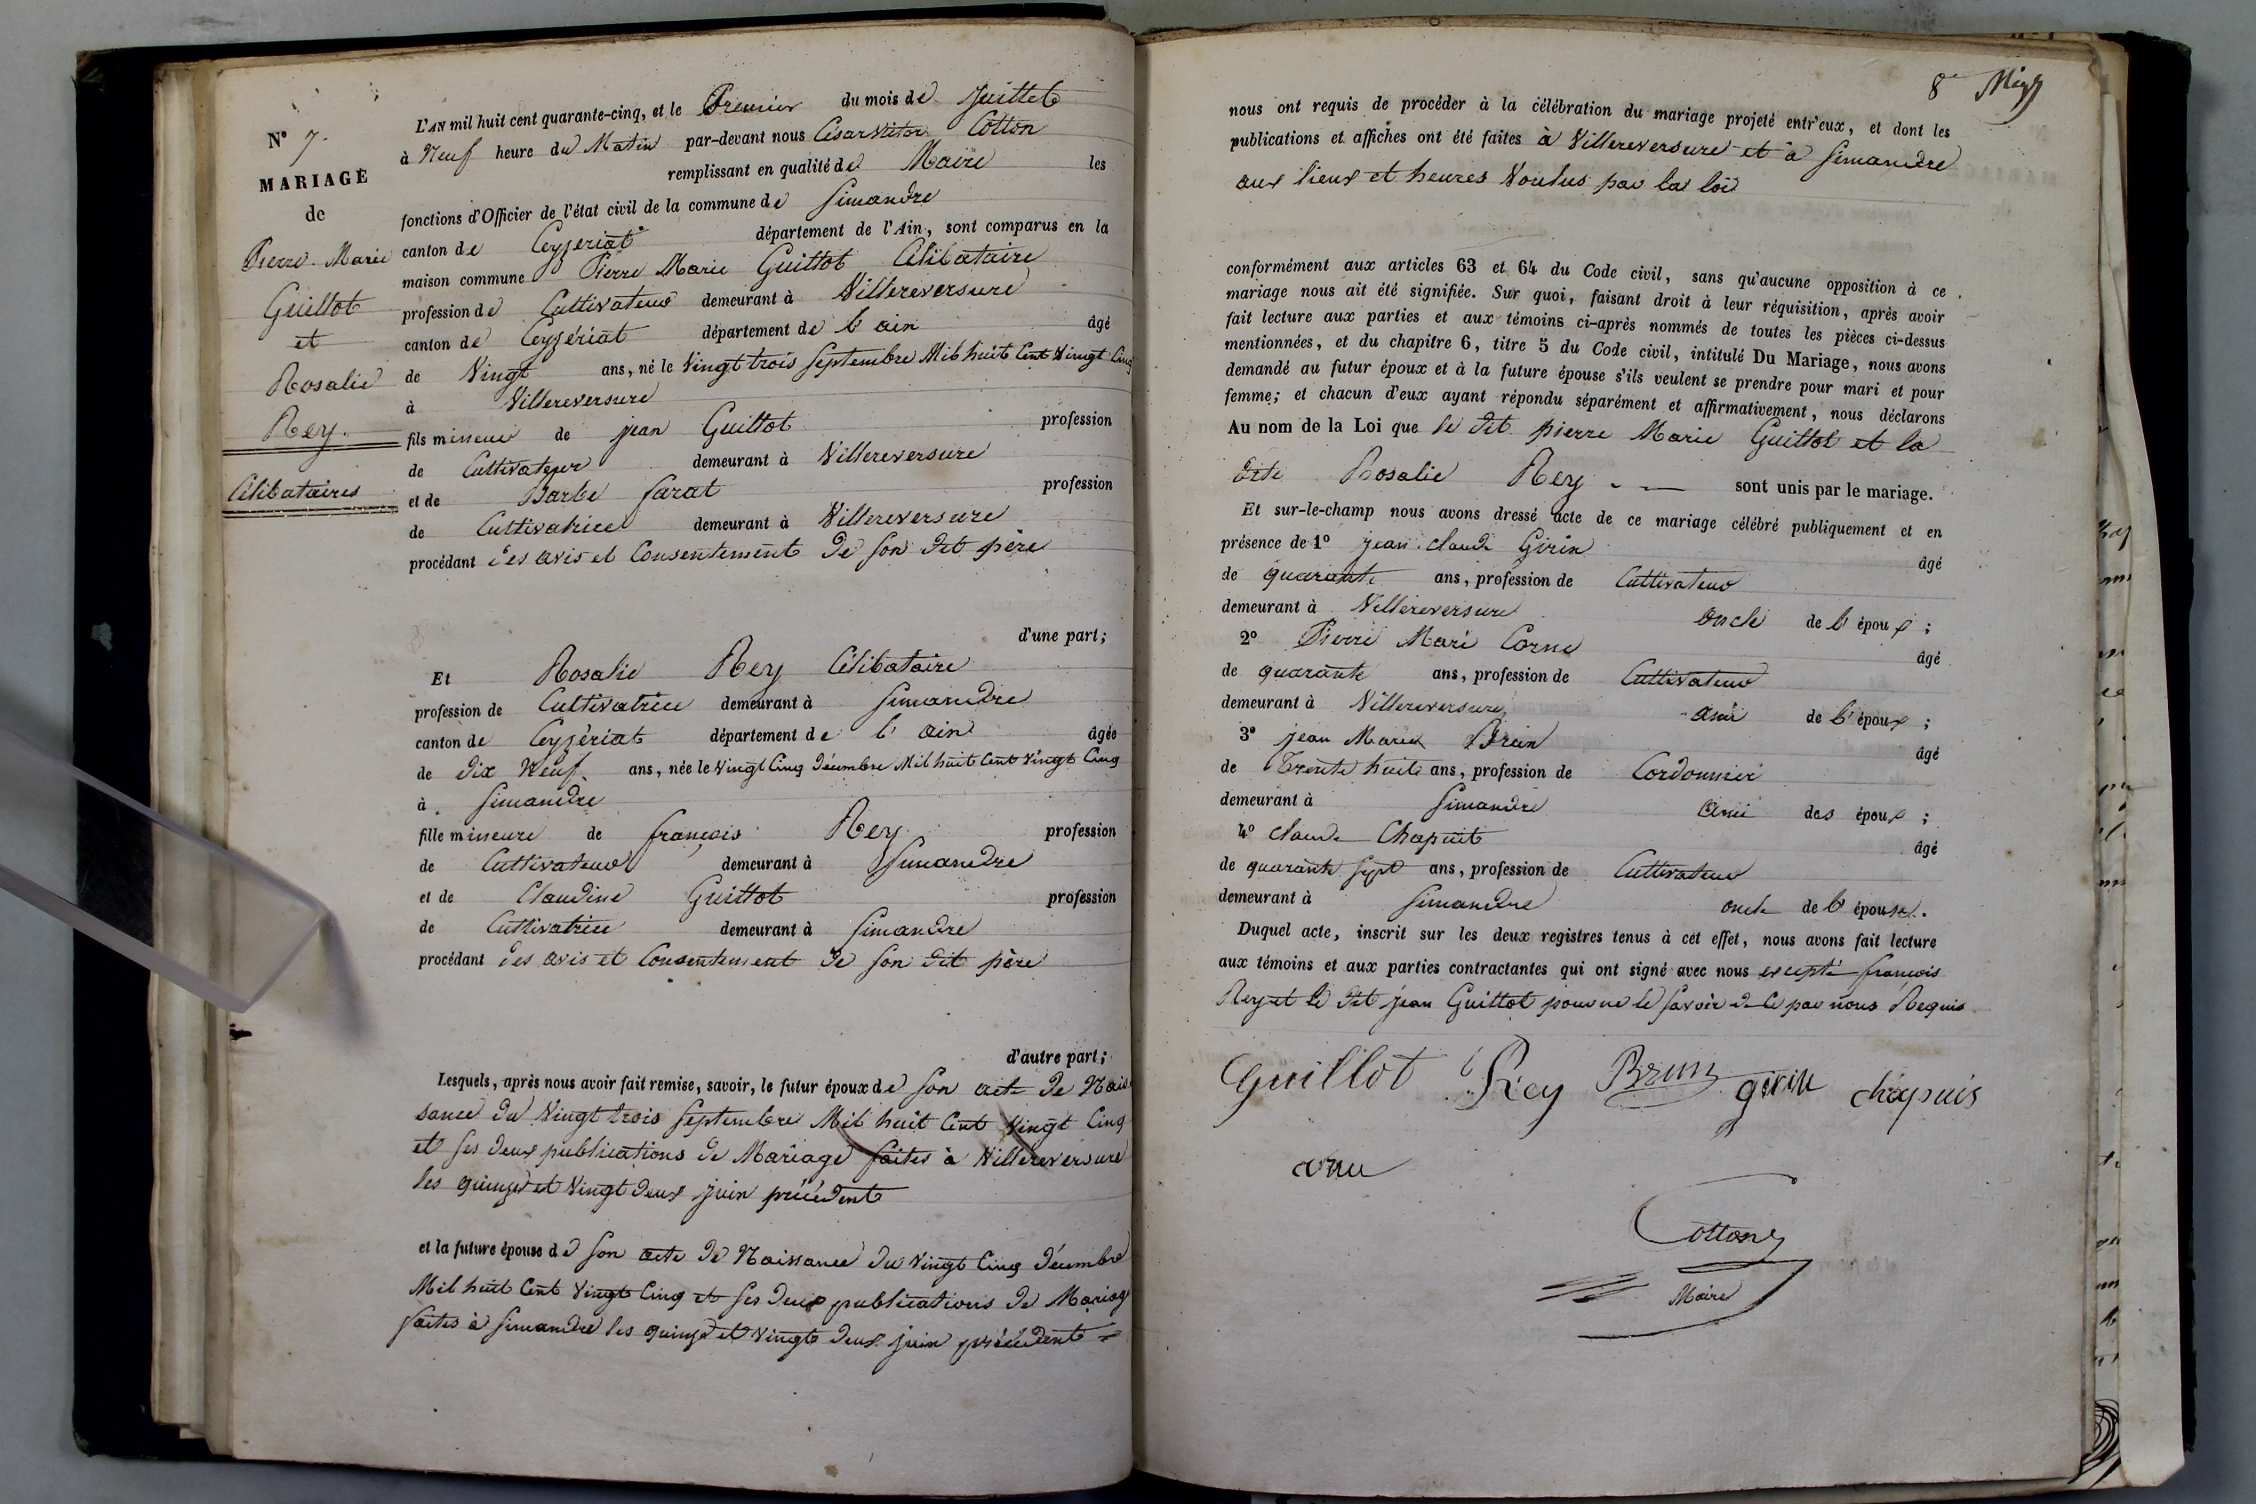 N° 7.
MARIAGE
de
Pierre Marie
Guillot
et
Rosalie
Rey.
Célibataires
L'AN mil huit cent quarante-cinq, et le Premier du mois de Juillet
à Neuf heure du Matin par-devant nous César Victor Cotton
remplissant en qualité de Maire les
fonctions d'Officier de l'état civil de la commune de Simandre
canton de Ceyzeriat département de l'Ain, sont comparus en la
maison commune Pierre Marie Guillot Célibataire
profession de Cultivateur demeurant à Villereversure
canton de Ceyzériat département de l'ain âgé
de Vingt ans, né le Vingt trois Septembre Mil huit Cent Vingt Cinq
à Villereversure
fils mineur de jean Guillot profession
de Cultivateur demeurant à Villereversure
et de Barbe farat profession
de Cultivatrice demeurant à Villereversure
procédant des avis et Consentement de son dit père
d'une part;
Et Rosalie Rey Célibataire
profession de Cultivatrice demeurant à Simandre
canton de Ceyzériat département de l'ain âgée
de dix Neuf ans, née le Vingt Cinq décembre Mil huit Cent Vingt Cinq
à Simandre
fille mineure de françois Rey profession
de Cultivateur demeurant à Simandre
et de Claudine Guillot profession
de Cultivatrice demeurant à Simandre
procédant des avis et Consentement de son dit père
d'autre part;
Lesquels, après nous avoir fait remise, savoir, le futur époux de son acte de Nais
sance du Vingt trois Septembre Mil huit Cent Vingt Cinq
et ses deux publications de Mariage faites à Villereversure
les quinze et Vingt deux juin précédent
et la future épouse de son acte de Naissance du Vingt Cinq décembre
Mil huit Cent Vingt Cinq et ses deux publications de Mariage
faites à Simandre les quinze et Vingt deux juin précédent
8e
nous ont requis de procéder à la célébration du mariage projeté entr'eux, et dont les
publications et affiches ont été faites à Villereversure et à Simandre
aux lieux et heures Voulus par la loi
conformément aux articles 63 et 64 du Code civil, sans qu'aucune opposition à ce
mariage nous ait été signifiée. Sur quoi, faisant droit à leur réquisition, après avoir
fait lecture aux parties et aux témoins ci-après nommés de toutes les pièces ci-dessus
mentionnées, et du chapitre 6, titre 5 du Code civil, intitulé Du Mariage, nous avons
demandé au futur époux et à la future épouse s'ils veulent se prendre pour mari et pour
femme; et chacun d'eux ayant répondu séparément et affirmativement, nous déclarons
Au nom de la Loi que le dit pierre Marie Guillot et la
dite Rosalie Rey sont unis par le mariage.
Et sur-le-champ nous avons dressé acte de ce mariage célébré publiquement et en
présence de 1° jean claude Girin âgé
de quarante ans, profession de Cultivateur
demeurant à Villereversure oncle de l'époux;
2° Pierre Mari Corne âgé
de quarante ans, profession de Cultivateur
demeurant à Villereversure ami de l'époux;
3° jean Marie Brun âgé
de Trente huit ans, profession de Cordonnier
demeurant à Simandre ami des époux;
4° claude Chapuit âgé
de quarante sept ans, profession de Cultivateur
demeurant à Simandre oncle de l'épouse.
Duquel acte, inscrit sur les deux registres tenus à cet effet, nous avons fait lecture
aux témoins et aux parties contractantes qui ont signé avec nous excepté françois
Rey et le dit jean Guillot pour ne le savoir de ce par nous Requis
Guillot Rey Brun girin chapuis
Cotton
Maire